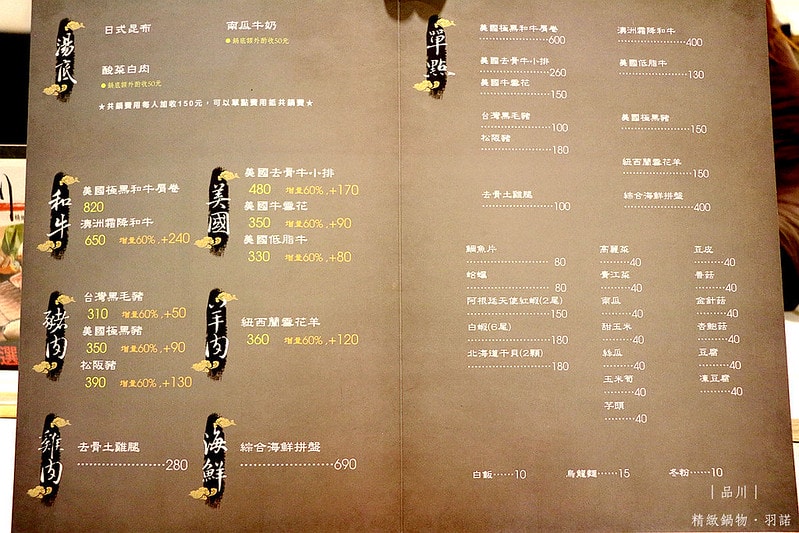 湯底
日式昆布
南瓜牛奶
●鍋底額外酌收50元
酸菜白肉
●鍋底額外酌收50元
★共鍋費用每人加收150元,可以單點費用抵共鍋費★
和牛
美國極黑和牛肩卷
820
澳洲霜降和牛
650 增量60%,+240
美國
美國去骨牛小排
480 增量60%,+170
美國牛雪花
350 增量60%,+90
美國低脂牛
330 增量60%,+80
豬肉
台灣黑毛豬
310 增量60%,+50
美國極黑豬
350 增量60%,+90
松阪豬
390 增量60%,+130
羊肉
紐西蘭雪花羊
360 增量60%,+120
雞肉
去骨土雞腿
280
海鮮
綜合海鮮拼盤
690
單點
美國極黑和牛肩卷
600
澳洲霜降和牛
400
美國去骨牛小排
260
美國低脂牛
130
美國牛雪花
150
台灣黑毛豬
100
美國極黑豬
150
松阪豬
180
紐西蘭雪花羊
150
去骨土雞腿
100
綜合海鮮拼盤
400
鯛魚片
80
蛤蠣
80
阿根廷天使紅蝦(2尾)
150
白蝦(6尾)
180
北海道干貝(2顆)
180
高麗菜
40
青江菜
40
南瓜
40
甜玉米
40
絲瓜
40
玉米筍
40
芋頭
40
豆皮
40
香菇
40
金針菇
40
杏鮑菇
40
豆腐
40
凍豆腐
40
白飯……10
烏龍麵……15
冬粉……10
|品川|
精緻鍋物·羽諾